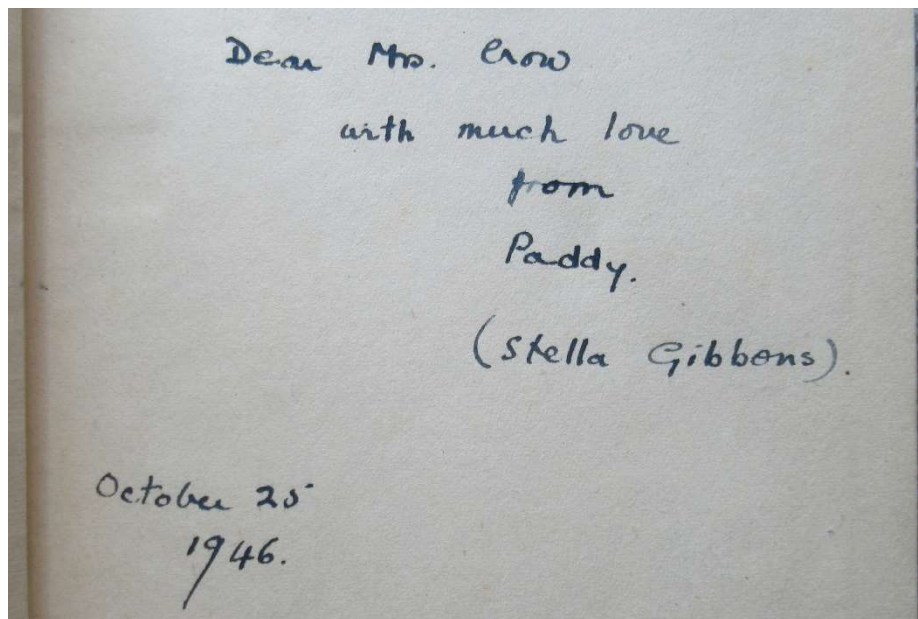 Dear Mrs. Crow
with much love
from
Paddy.
(Stella Gibbons).
October 25
1946.